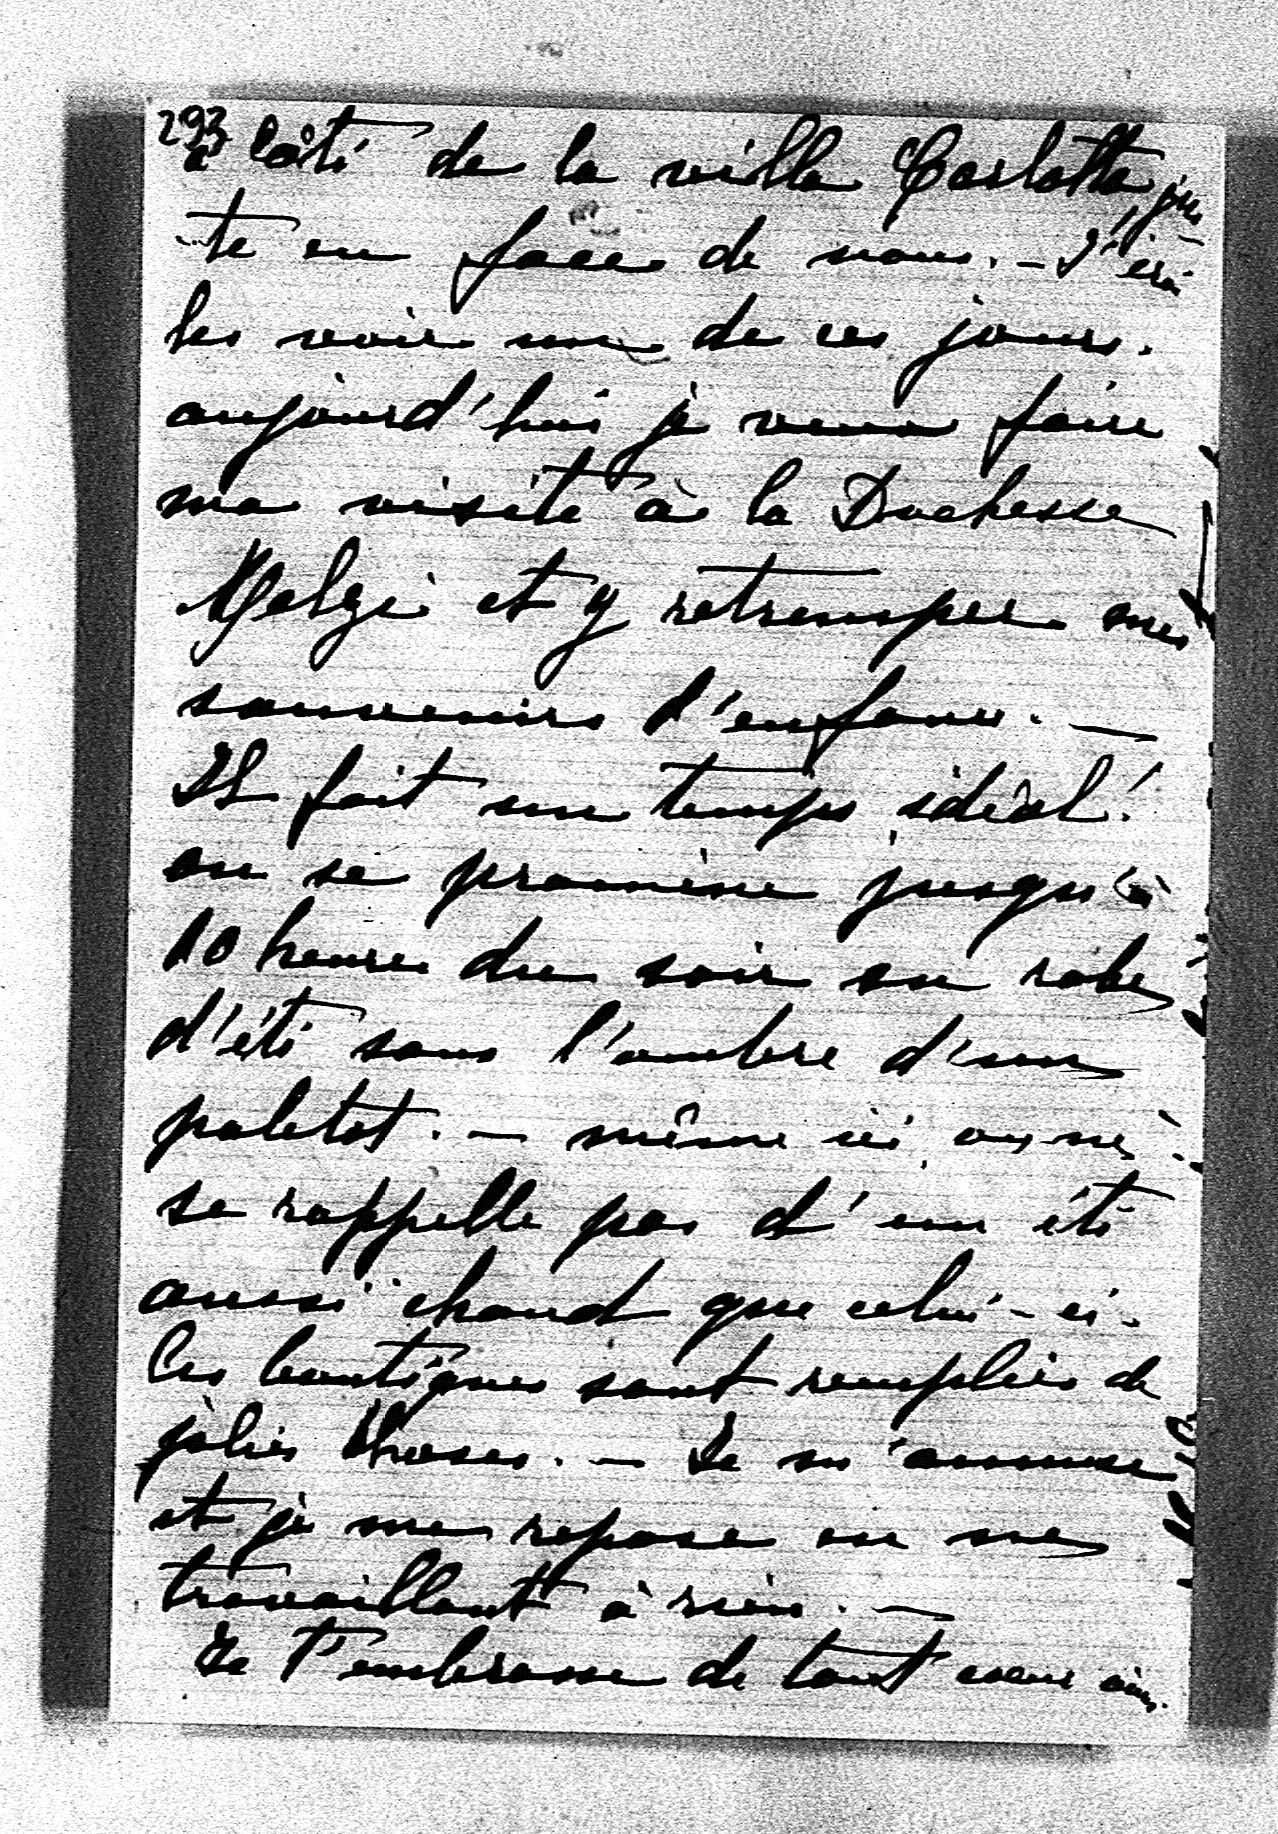 293
à côté de la villa Carlotta, jus
te en face de nous. – J'irai
les voir un de ces jours.
aujourd'hui je veux faire
ma visite à la Duchesse
Melzi et y retremper mes
souvenirs d'enfance. —
Il fait un temps idéal!
on se promène jusqu'à
10 heures du soir en robe
d'été sans l'ombre d'un
paletot. – même ici on ne
se rappelle pas d'un été
aussi chaud que celui-ci.
Les boutiques sont remplies de
jolies choses. – Je m'amuse
et je me repose en ne
travaillant à rien. —
Je t'embrasse de tout coeur